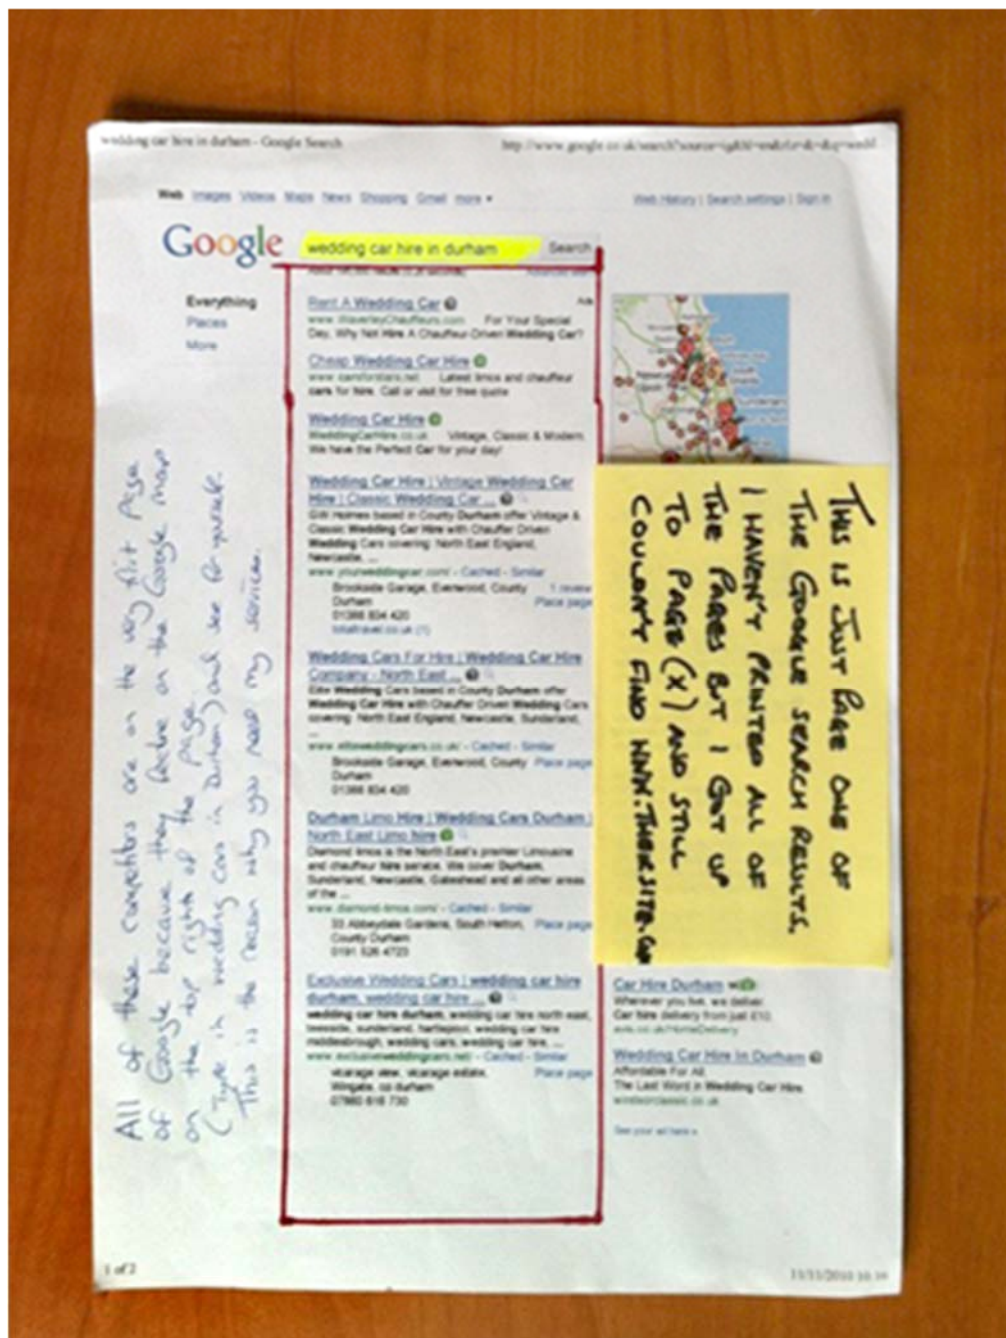 wedding car hire in durham - Google Search
Web Images Videos Maps News Shopping Gmail more
Web History | Search settings | Sign in
Google
wedding car hire in durham
Search
Everything
Places
More
Rent A Wedding Car
Ads
www.WaverleyChauffeurs.com For Your Special
Day, Why Not Hire A Chauffeur-Driven Wedding Car?
Cheap Wedding Car Hire
www.carsforstars.net Latest limos and chauffeur
cars for hire. Call or visit for free quote
Wedding Car Hire
WeddingCarHire.co.uk Vintage, Classic & Modern.
We have the Perfect Car for your day!
Wedding Car Hire | Vintage Wedding Car
Hire | Classic Wedding Car ...
GW Homes based in County Durham offer Vintage &
Classic Wedding Car Hire with Chauffer Driven
Wedding Cars covering: North East England,
Newcastle, ...
www.yourweddingcar.com/ - Cached - Similar
Brookside Garage, Evenwood, County
Durham
01388 834 420
1 review
Place page
totaltravel.co.uk (1)
Wedding Cars For Hire | Wedding Car Hire
Company - North East ...
Elite Wedding Cars based in County Durham offer
Wedding Car Hire with Chauffer Driven Wedding Cars
covering: North East England, Newcastle, Sunderland,
...
www.eliteweddingcars.co.uk/ - Cached - Similar
Brookside Garage, Evenwood, County
Durham
01388 834 420
Place page
Durham Limo Hire | Wedding Cars Durham |
North East Limo hire
Diamond limos is the North East's premier Limousine
and chauffeur hire service. We cover Durham,
Sunderland, Newcastle, Gateshead and all other areas
of the ...
www.diamond-limos.com/ - Cached - Similar
33 Abbeydale Gardens, South Hetton,
County Durham
0191 526 4723
Place page
Exclusive Wedding Cars | wedding car hire
durham, wedding car hire ...
wedding car hire durham, wedding car hire north east,
teesside, sunderland, hartlepool, wedding car hire
middlesbrough, wedding cars, wedding car hire, ...
www.exclusiveweddingcars.net/ - Cached - Similar
vicarage view, vicarage estate,
Wingate, co durham
07880 616 730
Place page
Sunderland
THIS IS JUST PAGE ONE OF
THE GOOGLE SEARCH RESULTS.
I HAVEN'T PRINTED ALL OF
THE PAGES BUT I GOT UP
TO PAGE (X) AND STILL
COULDN'T FIND WWW.THEIRSITE.COM
Car Hire Durham
Wherever you live, we deliver.
Car hire delivery from just £10.
avis.co.uk/HomeDelivery
Wedding Car Hire In Durham
Affordable For All
The Last Word in Wedding Car Hire
windsorclassic.co.uk
See your ad here »
All of these competitors are on the very first Page
of Google because they feature on the Google Map
on the top right of the page.
(Type in wedding cars in Durham) and see for yourself.
This is the reason why you need my services.
1 of 2
11/11/2010 10:16